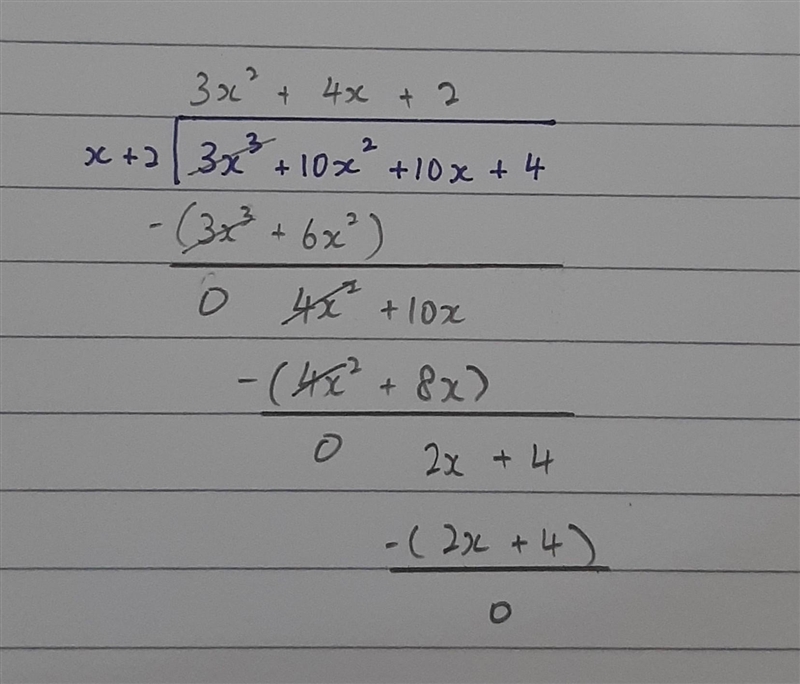 3x² + 4x + 2
x + 2 3x³ + 10x² + 10x + 4
-(3x³ + 6x²)
0 4x² + 10x
-(4x² + 8x)
0 2x + 4
-(2x + 4)
0